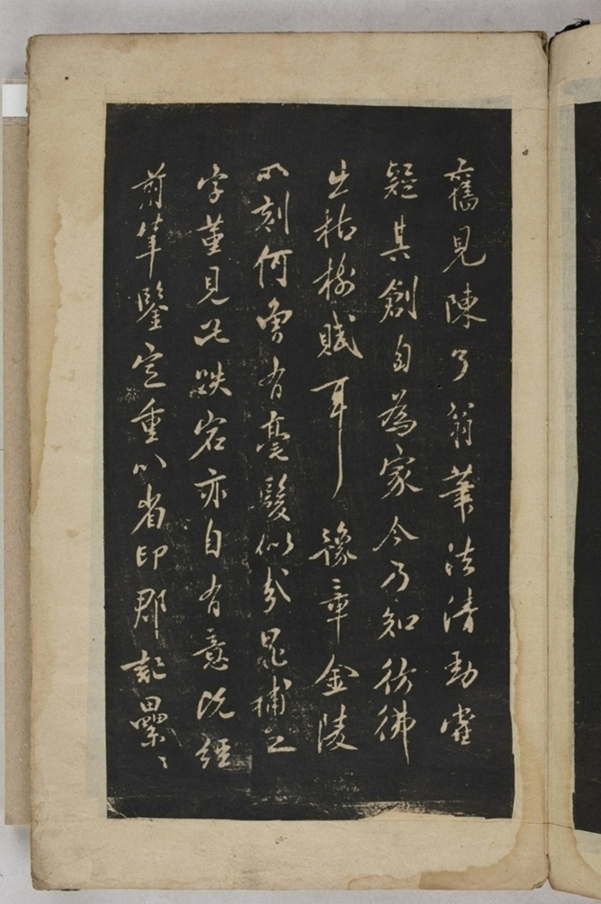 舊見陳了翁筆法清勁嘗
疑其創自為家今乃知彷彿
出枯樹賦耳豫章金陵
所刻何曾有毫髮似晁補之
字堇見此跌宕亦自有意況經
前輩鑒定重以省印郡記纍〻